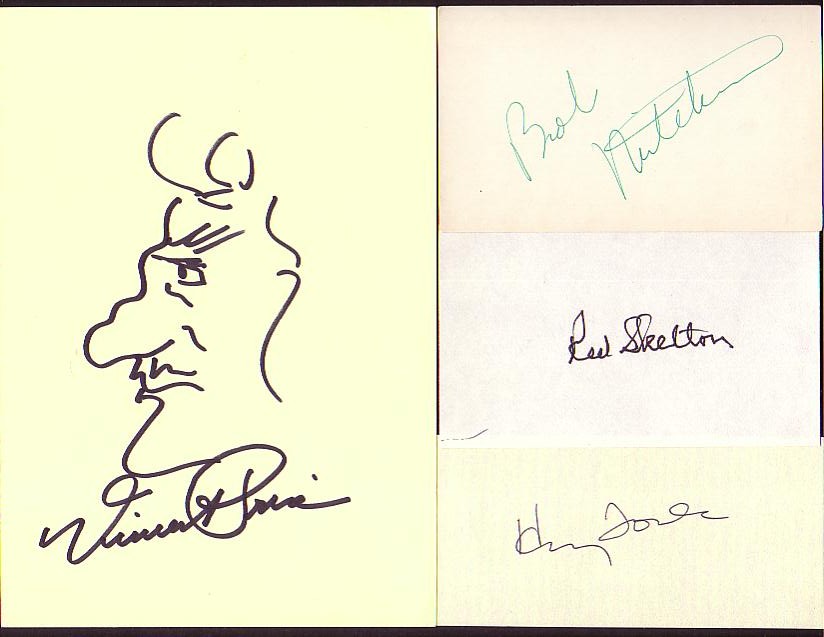 Vincent Price
Bob
Red Skelton
Henry Fonda